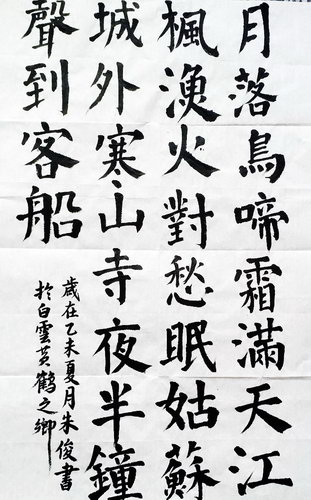 月落烏啼霜滿天江
楓漁火對愁眠姑蘇
城外寒山寺夜半鐘
聲到客船
歲在乙未夏月朱俊書
於白雲黃鶴之鄉